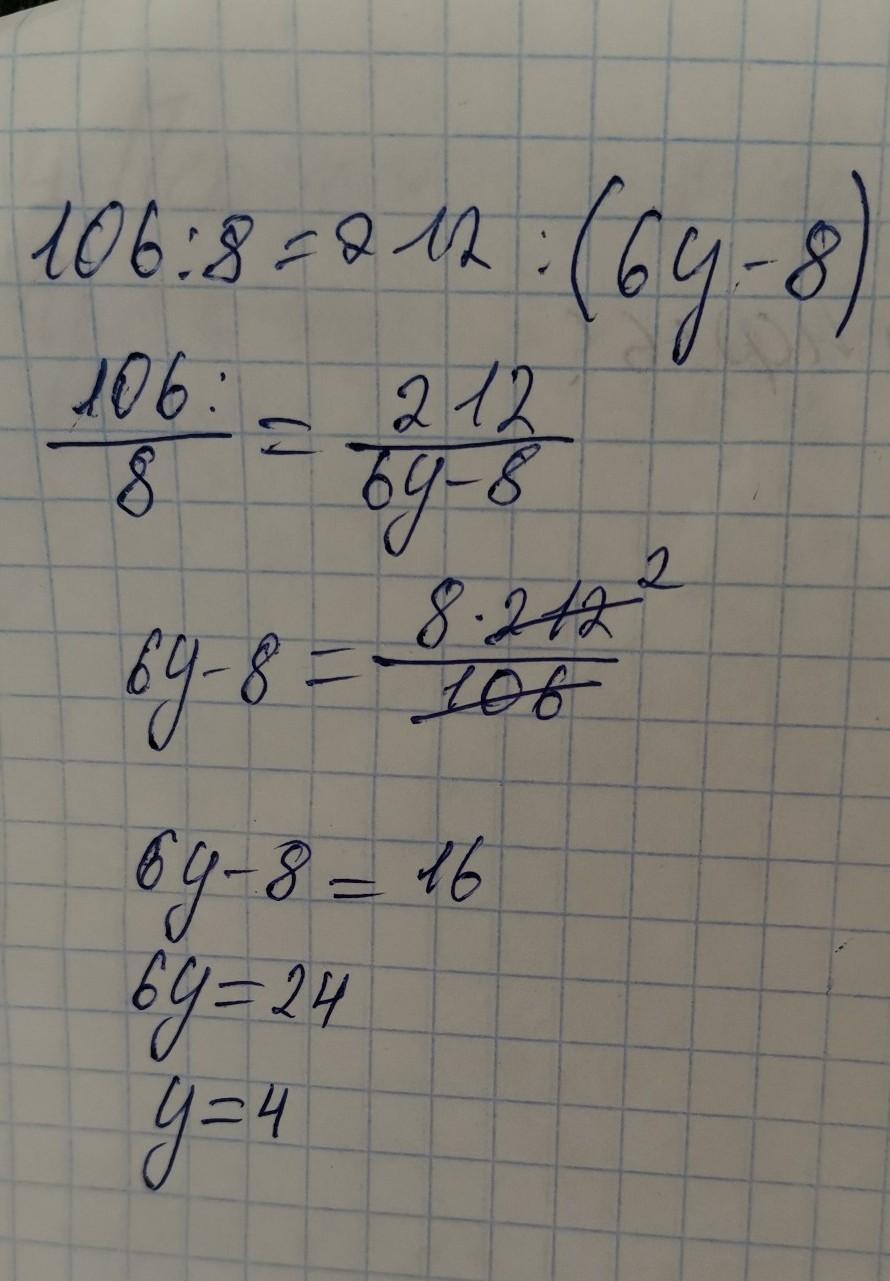 106:8=212:(6y-8)
106: / 8 = 212 / 6y-8
6y-8 = 8·212 2 / 106
6y-8=16
6y=24
y=4